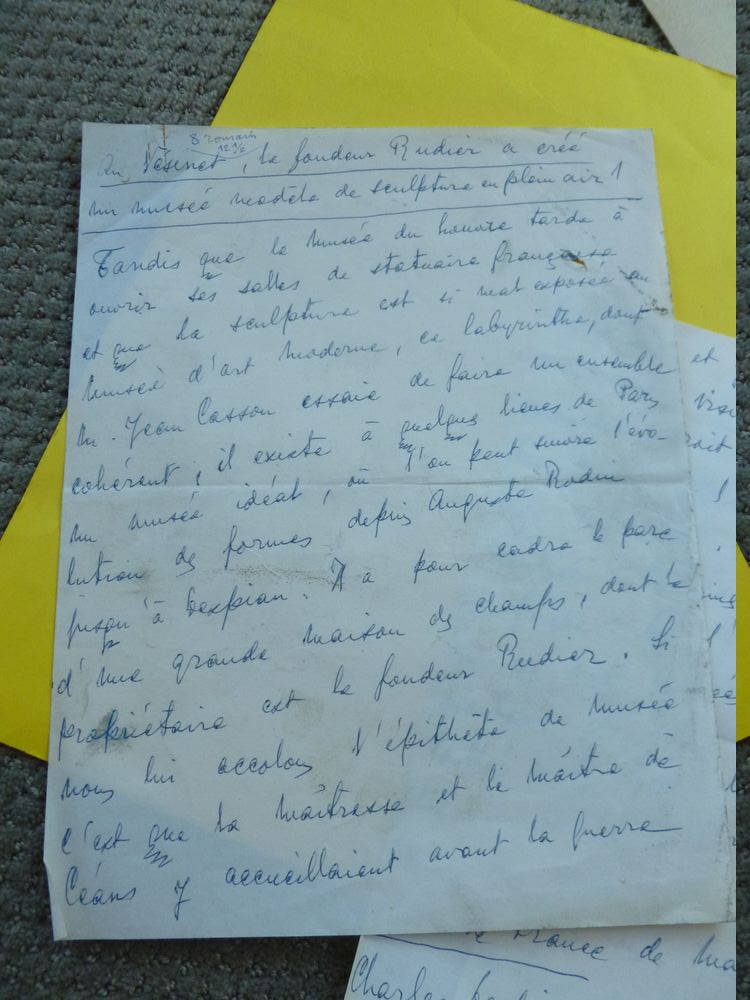 8 romain
12 1/2
Au Vésinet, le fondeur Rudier a créé
un musée modèle de sculpture en plein air !
Tandis que le musée du Louvre tarde à
ouvrir ses salles de statuaire française
et que la sculpture est si mal exposée au
Musée d'art moderne, ce labyrinthe, dont
M. Jean Casson essaie de faire un ensemble
cohérent, il existe à quelques lieues de Paris
un musée idéal, où l'on peut suivre l'évo-
lution des formes depuis Auguste Rodin
jusqu'à Despiau. Il a pour cadre le parc
d'une grande maison des champs, dont le
propriétaire est le fondeur Rudier. Si
nous lui accolons l'épithète de musée
c'est que la maîtresse et le maître de
Céans y accueillaient avant la guerre
et
l'
France de
Charles